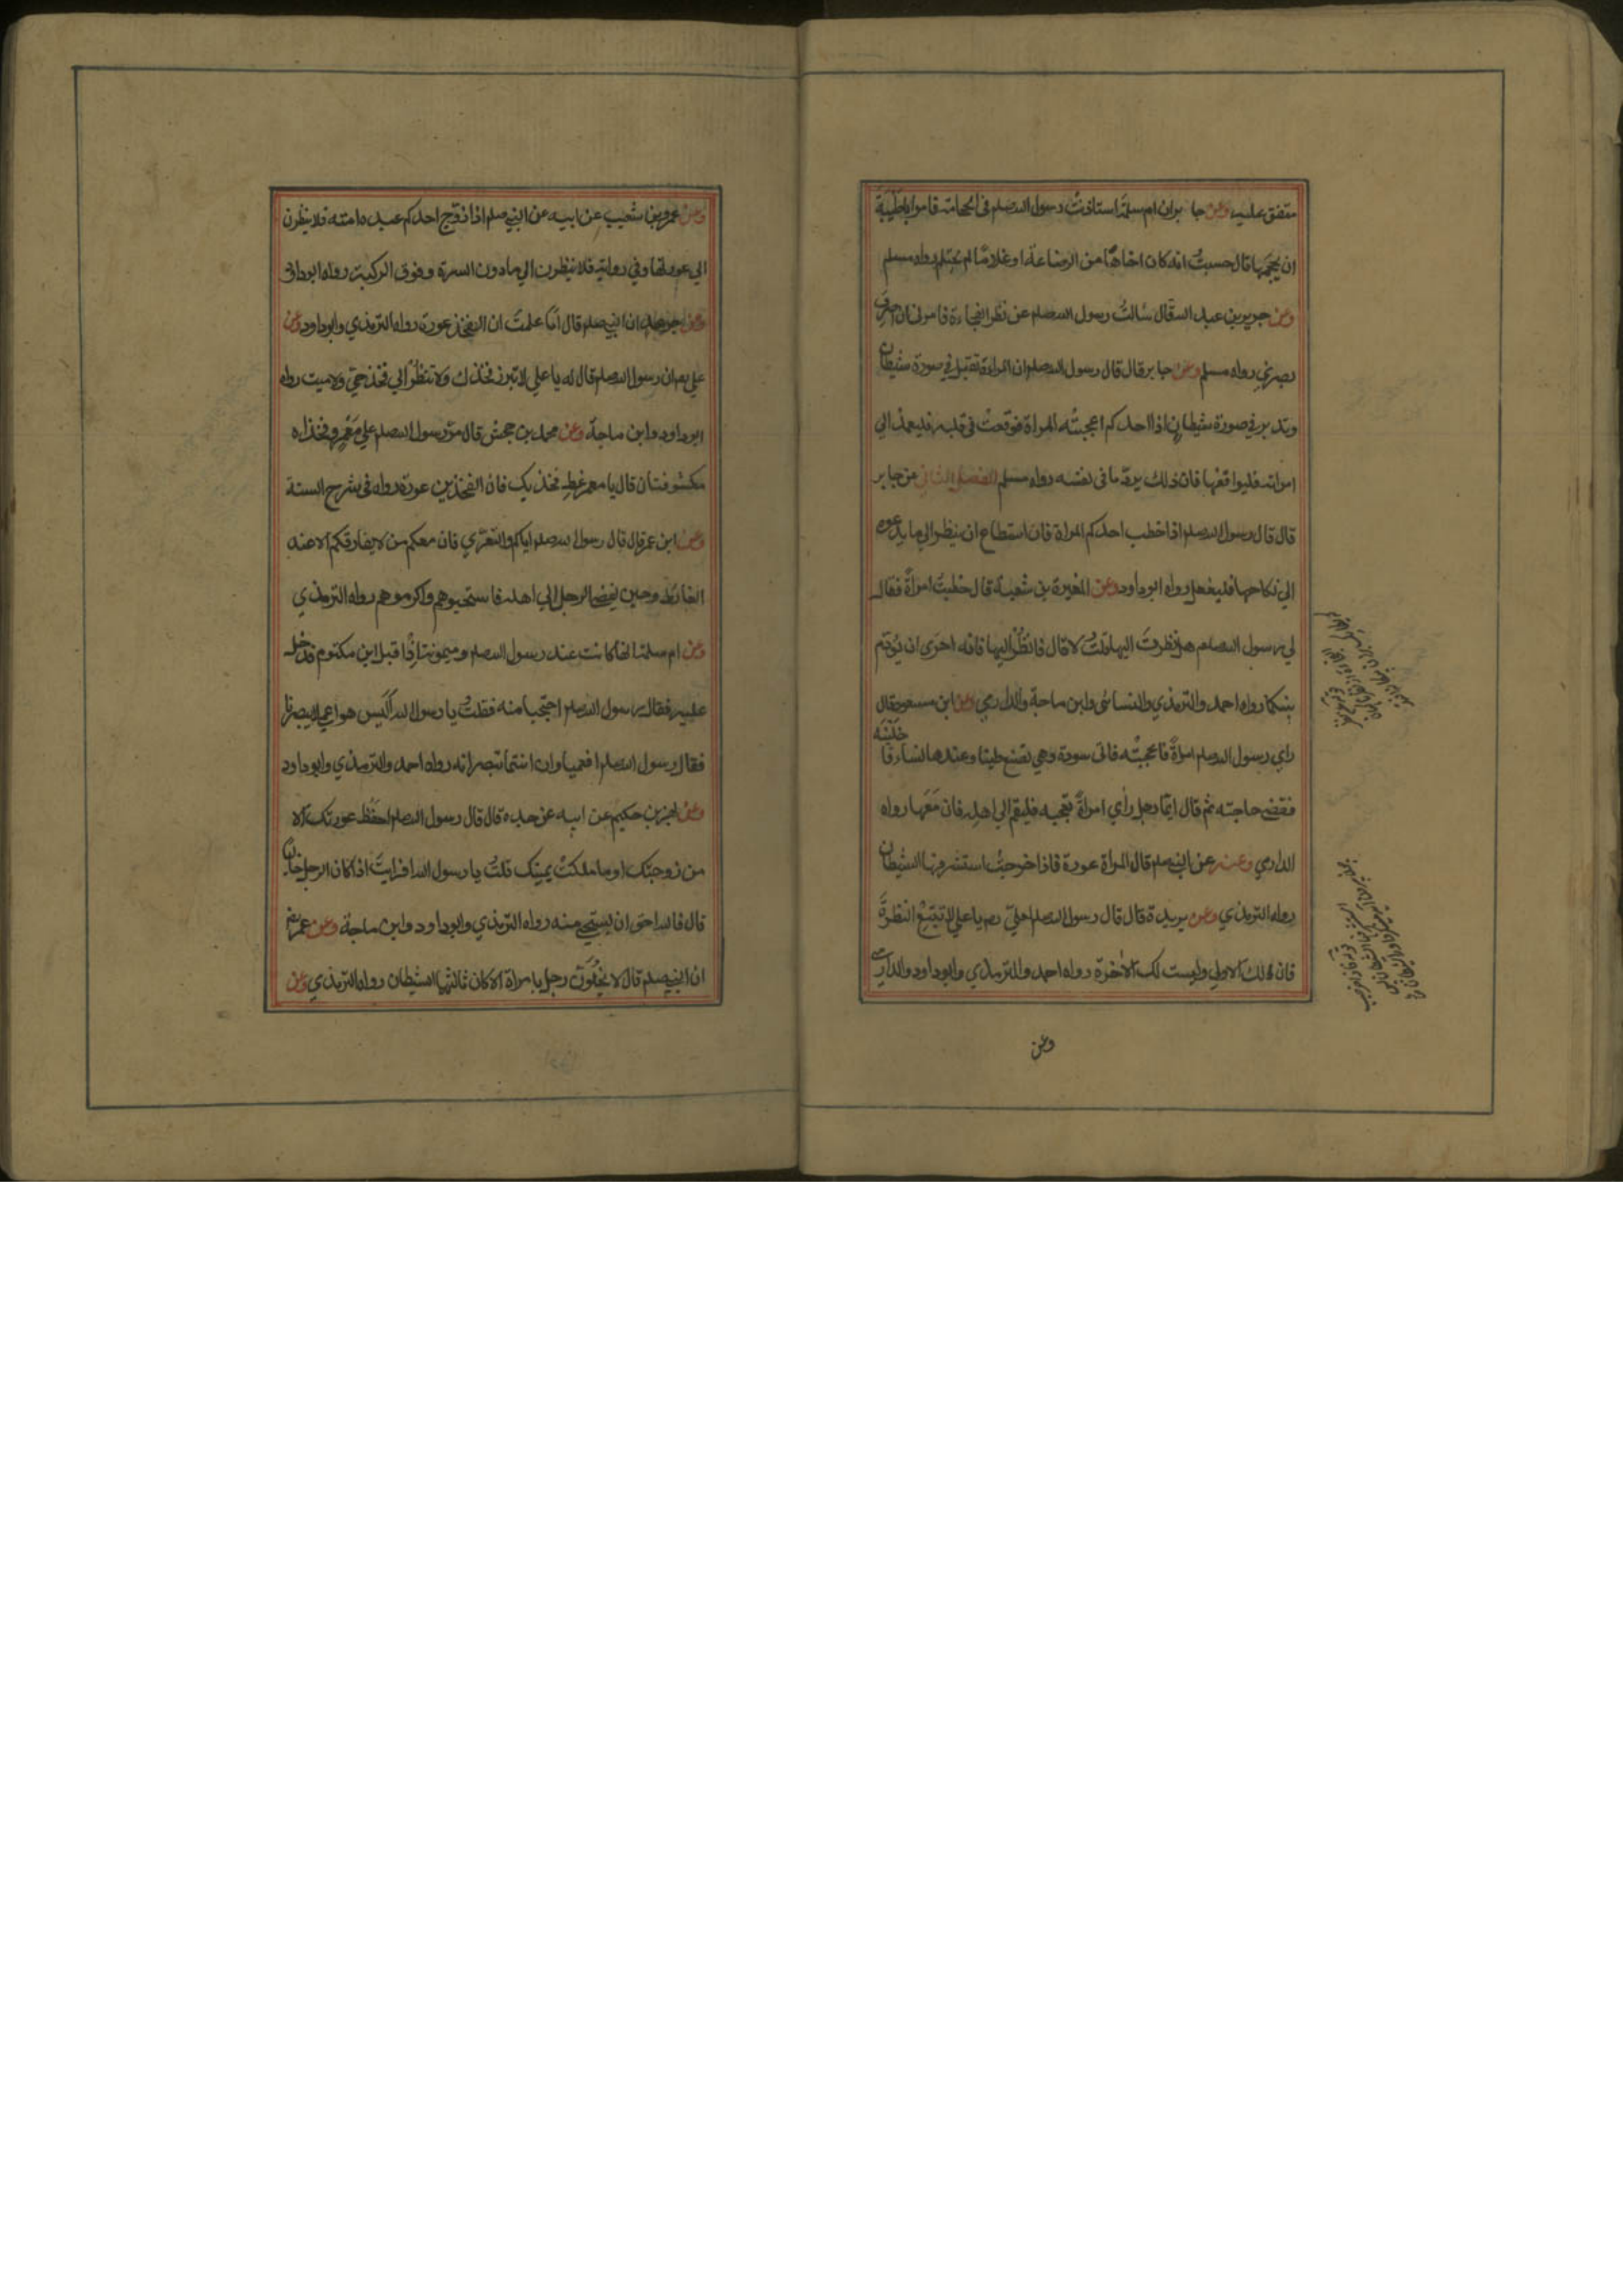 متفق عليه وعن جابر ان ام سلمة استاذنت رسول الله صلعم في الحجامة فامر اباطيبة
ان يحجمها قال حسبت انه كان اخاها من الرضاعة او غلاما لم يحتلم رواه مسلم
وعن جرير بن عبد الله قال سالت رسول الله صلعم عن نظر الفجاءة فامرني ان اصرف
بصري رواه مسلم وعن جابر قال قال رسول الله صلعم ان المراة تقبل في صورة شيطان
وتدبر في صورة شيطان اذا احدكم اعجبته المراة فوقعت في قلبه فليعمد الي
امراته فليواقعها فان ذلك يرد ما في نفسه رواه مسلم الفصل الثاني عن جابر
قال قال رسول الله صلعم اذا خطب احدكم المراة فان استطاع ان ينظر الي ما يدعوه
الي نكاحها فليفعل رواه ابوداود وعن المغيرة بن شعبة قال خطبت امراة فقال
لي رسول الله صلعم هل نظرت اليها قلت لا قال فانظر اليها فانه احرى ان يؤدم
بينكما رواه احمد والترمذي والنسائي وابن ماجة والدارمي وعن ابن مسعود قال
راي رسول الله صلعم امراة فاعجبته فاتى سودة وهي تصنع طيبا وعندها نساء فاخلينه
فقضى حاجته ثم قال ايما رجل رأي امراة تعجبه فليقم الي اهله فان معها رواه
الدارمي وعنه عن النبي صلعم قال المراة عورة فاذا خرجت استشرفها الشيطان
رواه الترمذي وعن بريدة قال قال رسول الله صلعم لعلي رض يا علي لا تتبع النظرة
فان لك الاولي وليست لك الاخرة رواه احمد والترمذي وابوداود والدارمي
وعن
وعن عمرو بن شعيب عن ابيه عن النبي صلعم اذا زوج احدكم عبده امته فلا ينظرن
الي عورتها وفي رواية فلا ينظرن الي ما دون السرة وفوق الركبة رواه ابوداود
وعن جرهد ان النبي صلعم قال اما علمت ان الفخذ عورة رواه الترمذي وابوداود وعن
علي رض ان رسول الله صلعم قال له يا علي لا تبرز فخذك ولا تنظر الي فخذ حي ولا ميت رواه
ابوداود وابن ماجة وعن محمد بن جحش قال مر رسول الله صلعم علي معمر وفخذاه
مكشوفتان قال يا معمر غط فخذيك فان الفخذين عورة رواه في شرح السنة
وعن ابن عمر قال قال رسول الله صلعم اياكم والتعري فان معكم من لا يفارقكم الا عند
الغائط وحين يفضي الرجل الي اهله فاستحيوهم واكرموهم رواه الترمذي
وعن ام سلمة انها كانت عند رسول الله صلعم وميمونة اذ اقبل ابن مكتوم فدخل
عليه فقال رسول الله صلعم احتجبا منه فقلت يا رسول الله اليس هو اعمي لا يبصرنا
فقال رسول الله صلعم افعمياوان انتما تبصرانه رواه احمد والترمذي وابوداود
وعن بهز بن حكيم عن ابيه عن جده قال قال رسول الله صلعم احفظ عورتك الا
من زوجتك او ما ملكت يمينك قلت يا رسول الله افرايت اذا كان الرجل خاليا
قال فالله احق ان يستحي منه رواه الترمذي وابوداود وابن ماجة وعن عمر رض
ان النبي صلعم قال لا يخلون رجل بامراة الا كان ثالثها الشيطان رواه الترمذي وعن